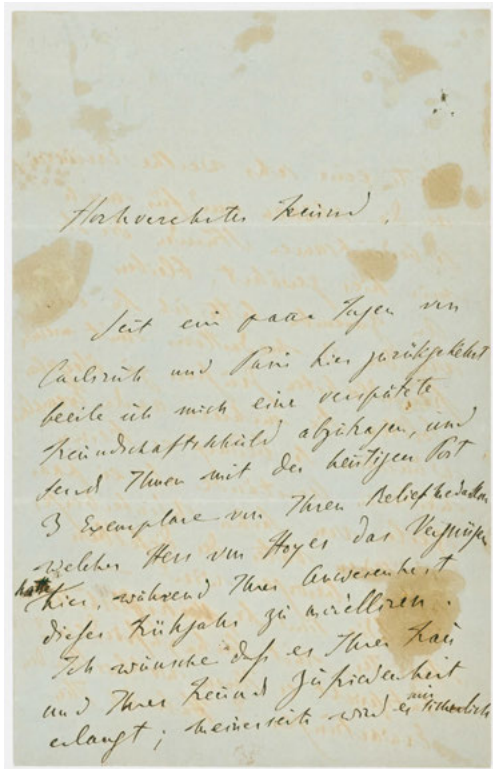 Hochverehrter Freund,
Seit ein paar Tagen von
Carlsruh und Paris hier zurückgekehrt
beeile ich mich eine verspätete
Freundschaftsschuld abzutragen, und
send Ihnen mit der heutigen Post
3 Exemplare von Ihren Relief Medaillon
welches Herr von Hoyer das Vergnügen
hatte
hier, während Ihrer Anwesenheit
dieses Frühjahr zu
Ich wünsche dass es Ihrer Frau
und Ihrer Freund Zufriedenheit
erlangt; meinerseits wird es mir sicherlich